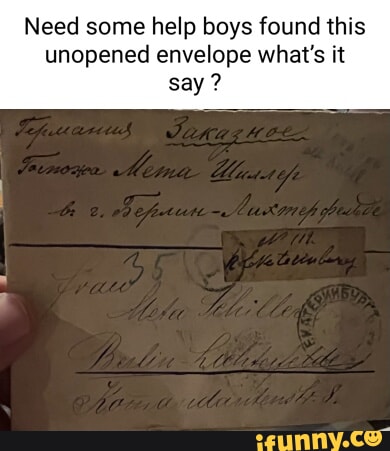 Need some help boys found this
unopened envelope what's it
say ?
Германия Заказное
Госпожа Мета Шиллер
въ г. Берлин-Лихтерфельде
№ 111.
Ekaterinburg
35
R
Frau
Meta Schiller
ЕКАТЕРИНБУРГ
Berlin - Lichterfelde
Kommandantenstr. 8.
ifunny.co